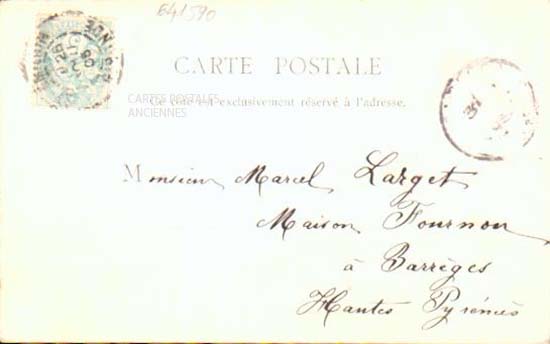 E41590
CARTE POSTALE
Ce côté est exclusivement réservé à l'adresse.
CARTES POSTALES
ANCIENNES
Monsieur Marcel Larget
Maison Fournou
à Barrèges
Hautes Pyrénées